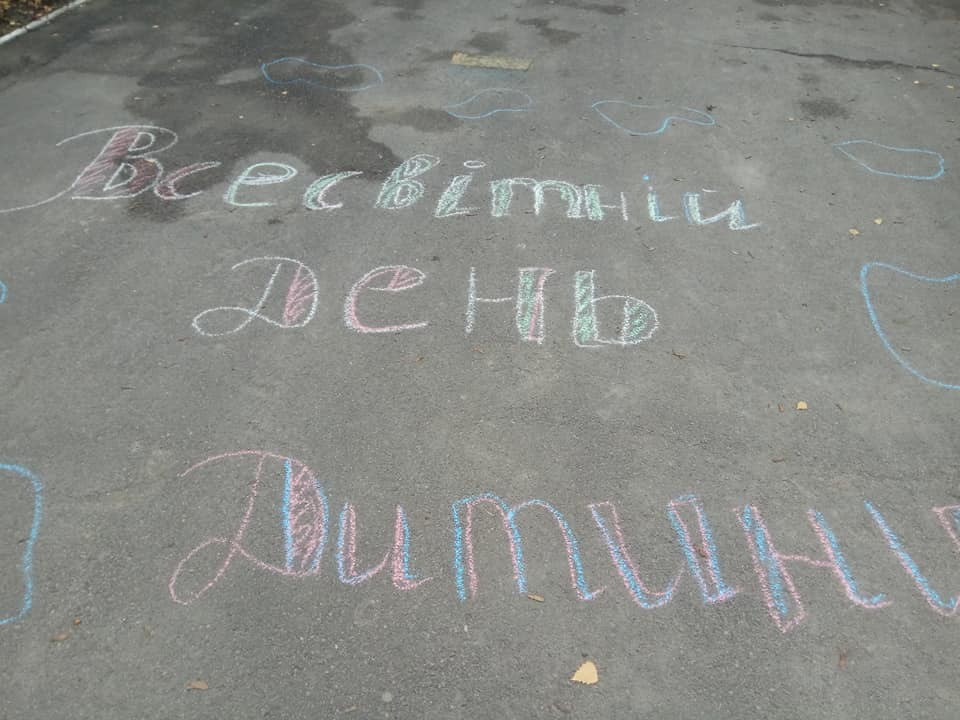 Всесвітній
День
Дитини